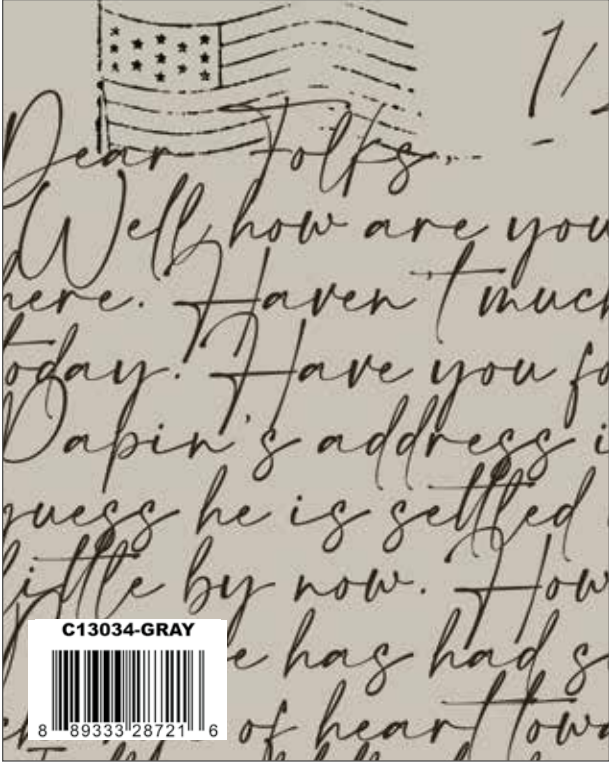 1/
Dear Folks,
Well how are you
here. Haven't much
today. Have you fo
Dapin's address i
guess he is settled
little by now. How
e has had s
of heart towa
C13034-GRAY
8 89333 28721 6